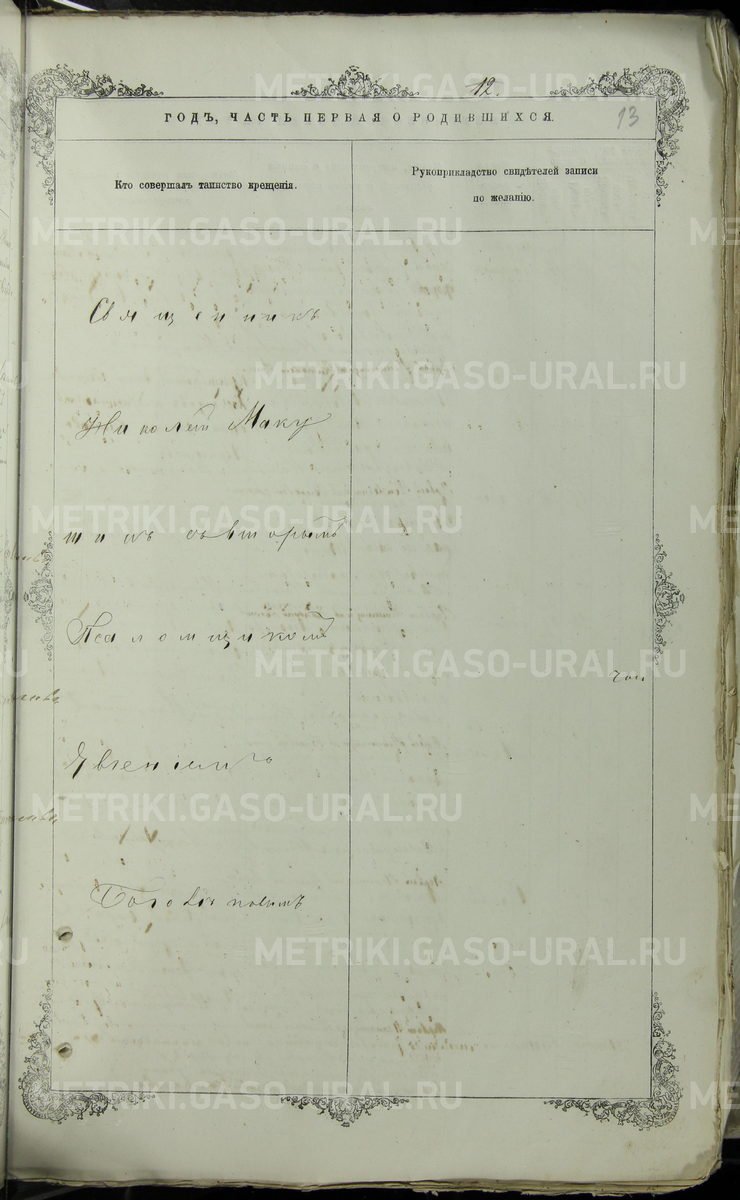 12.
13
ГОДЪ, ЧАСТЬ ПЕРВАЯ О РОДИВШИХСЯ.
Кто совершалъ таинство крещенія.
Рукоприкладство свидѣтелей записи
по желанію.
Священникъ
Николай Маку
шинъ съ вторымъ
Псаломщикомъ
METRIKI.GASO-URAL.RU